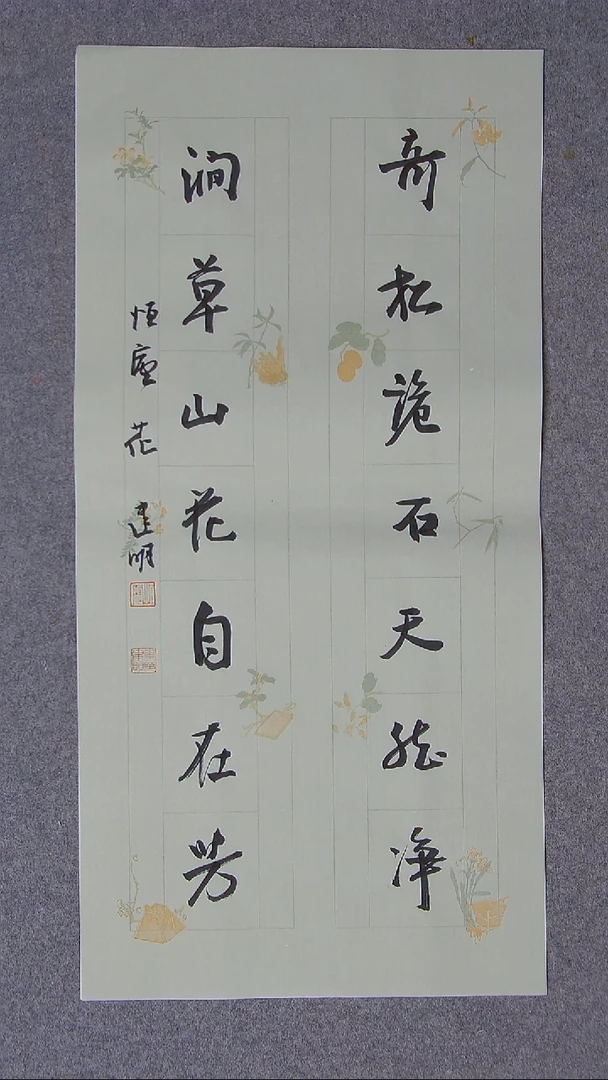 奇松诡石天然净
涧草山花自在芳
恒庐 花 建明